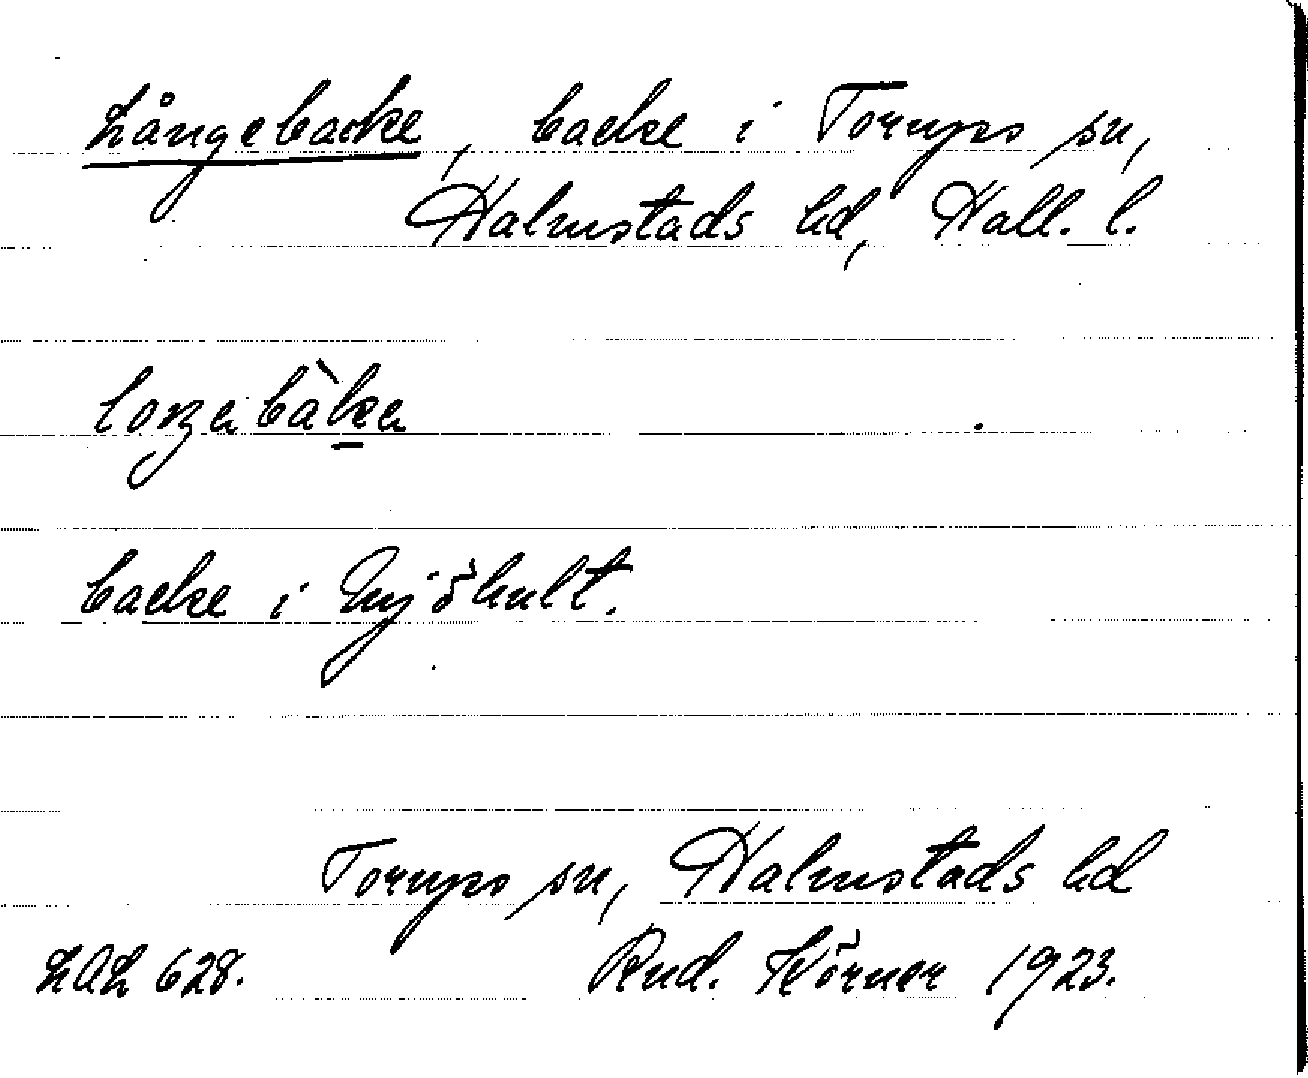 Långebacke, backe i Torups sn,
Halmstads hd, Hall. l.
backe i Mjöhult.
Torups sn, Halmstads hd
LAL 628. Rud. Körner 1923.